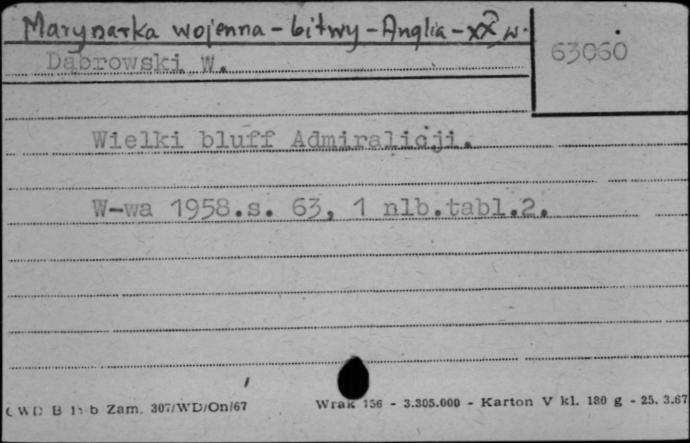 Marynarka wojenna - bitwy - Anglia - XX w.
63060
Dąbrowski W.
Wielki bluff Admiralicji.
W-wa 1958.s. 63, 1 nlb.tabl.2.
CWD B Zam. 307/WD/On/67 Wrak 156 - 3.305.000 - Karton V kl. 180 g - 25. 3.67